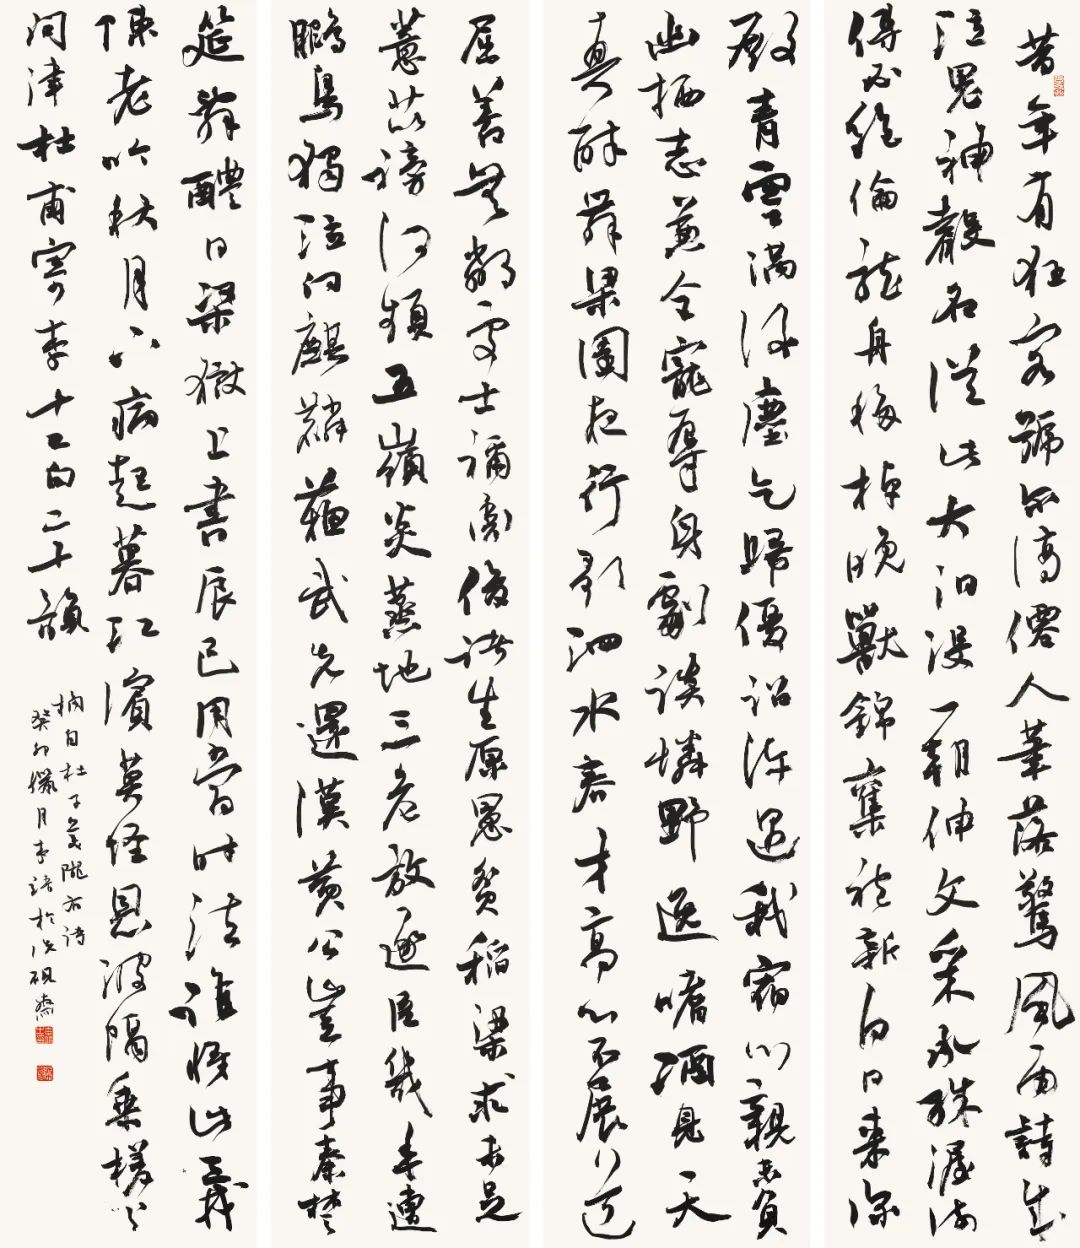 昔年有狂客號爾謫僊人筆落驚風雨詩成
泣鬼神聲名從此大汩沒一朝伸文采承殊渥流
傳必絕倫龍舟移棹晚獸錦奪袍新白日來深
殿青雲滿後塵乞歸優詔許遇我宿心親未負
幽栖志兼全寵辱身劇談憐野逸嗜酒見天
真醉舞梁園夜行歌泗水春才高心不展道
屈善無鄰處士禰衡俊諸生原憲貧稻粱求未足
薏苡謗何頻五嶺炎蒸地三危放逐臣幾年遭
鵩鳥獨泣向麒麟蘇武先還漢黃公豈事秦楚
筵辭醴日梁獄上書辰已用當時法誰將此義
陳老吟秋月下病起暮江濱莫怪恩波隔乘槎與
問津杜甫寄李十二白二十韻
摘自杜子美隴右詩
癸卯月於硯齋